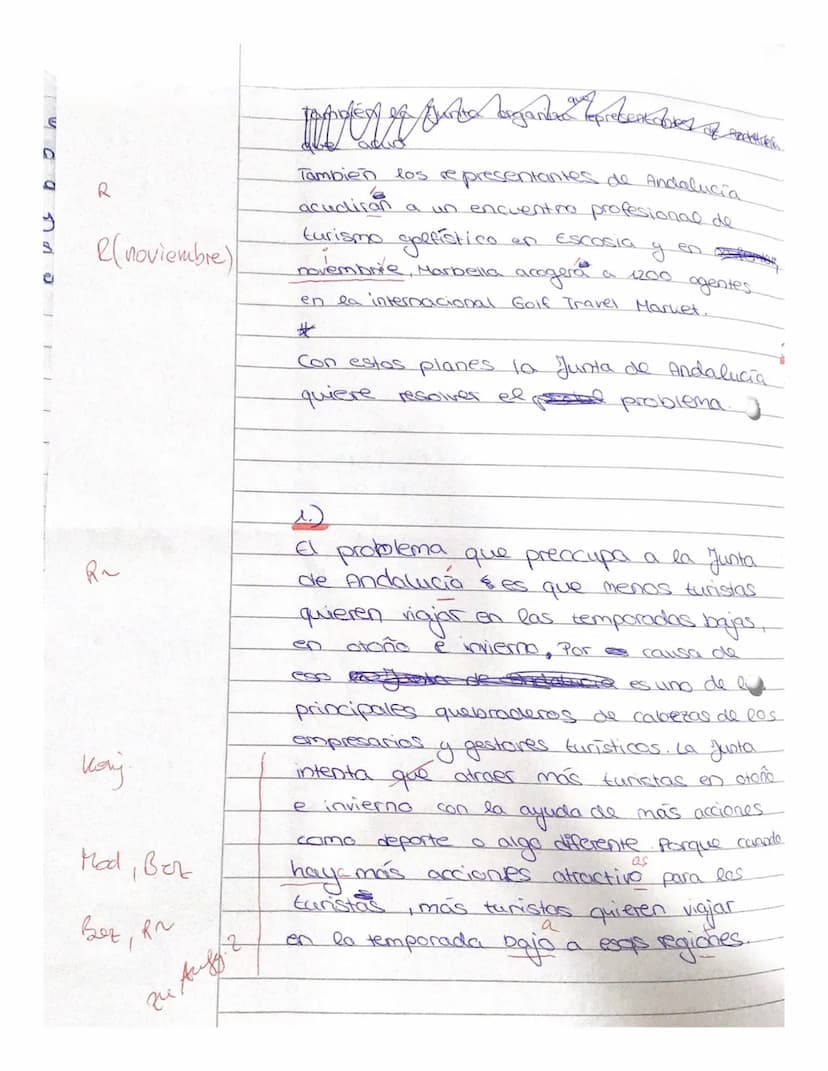 También los representantes de Andalucía
R
acudirán a un encuentro profesional de
turismo golfístico en Escosia y en
R(noviembre)
noviembrie, Marbella acogerá a 1200 agentes
en la internacional Golf Travel Market.
*
Con estos planes la Junta de Andalucía
quiere resolver el problema.
1.)
El problema que preocupa a la Junta
R~
de Andalucía es que menos turistas
quieren viajar en las temporadas bajas,
en otoño e invierno. Por causa de
eso es uno de los
principales quebraderos de cabezas de los
empresarios y gestores turísticos. La Junta
Konj.
intenta que atraer más turistas en otoño
e invierno con la ayuda de más acciones
como deporte o algo diferente. Porque cuando
Mod, Bez
as
haya más acciones atractivo para los
turistas, más turistas quieren viajar
Bez, R~
a
en la temporada bajo a esas regiones.
zu Aufg. 2